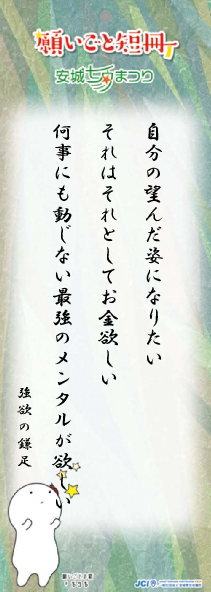 願いごと短冊
安城七夕まつり
自分の望んだ姿になりたい
それはそれとしてお金欲しい
何事にも動じない最強のメンタルが欲しい
強欲の鎌足
JCI